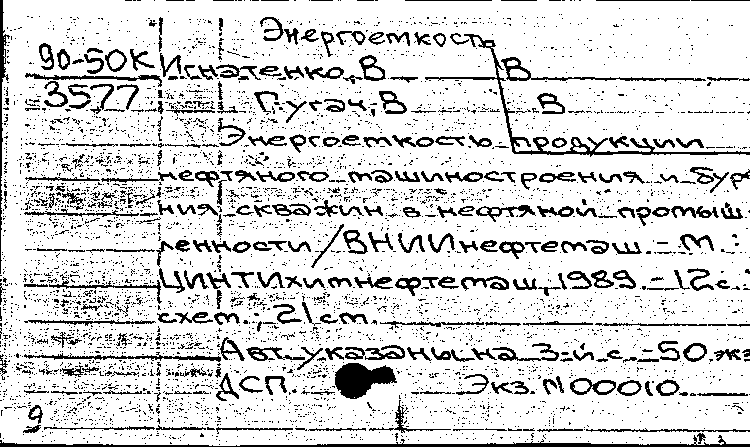 Энергоемкость
90-50К Игнатенко, В В
3577 Пугач, В В
Энергоемкость продукции
нефтяного машиностроения и буре
ния скважин в нефтяной промыш
ленности / ВНИИнефтемаш. - М. :
ЦИНТИхимнефтемаш, 1989. - 12 с. :
схем. ; 21 см.
Авт. указаны на 3-й с. - 50 экз
ДСП. Экз. N 00010.
9